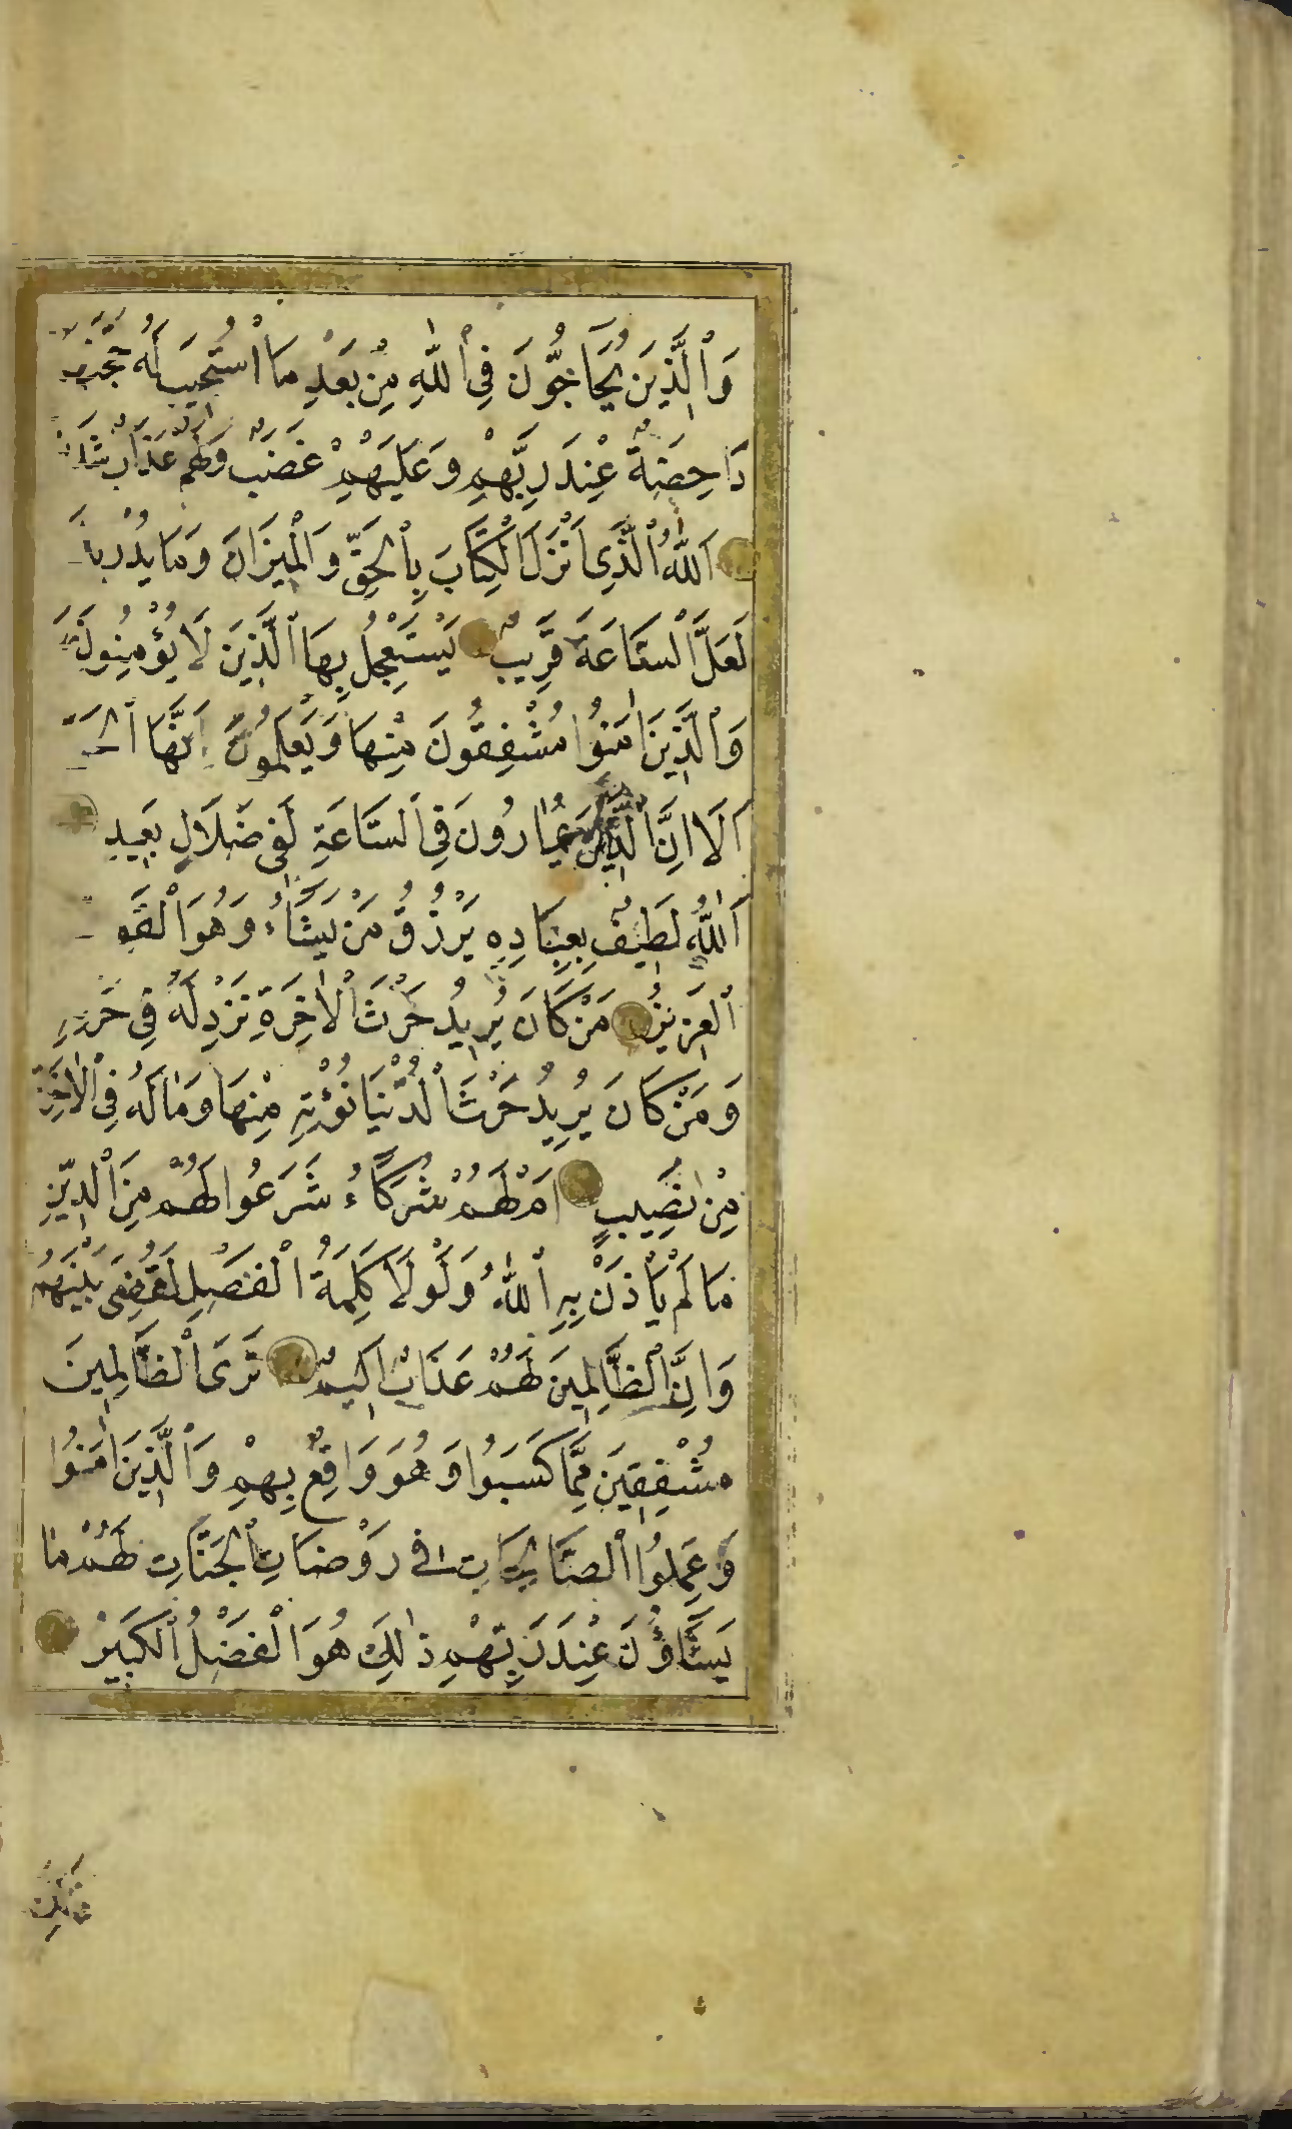 وَالَّذِينَ يُحَاجُّونَ فِي اللّٰهِ مِنْ بَعْدِ مَا اسْتُجِيبَ لَهُ حُجَّتُهُمْ
دَاحِضَةٌ عِنْدَ رَبِّهِمْ وَعَلَيْهِمْ غَضَبٌ وَلَهُمْ عَذَابٌ شَدِيدٌ
اَللّٰهُ الَّذِي اَنْزَلَ الْكِتَابَ بِالْحَقِّ وَالْمِيزَانَ وَمَا يُدْرِيكَ
لَعَلَّ السَّاعَةَ قَرِيبٌ يَسْتَعْجِلُ بِهَا الَّذِينَ لَا يُؤْمِنُونَ بِهَا
وَالَّذِينَ اٰمَنُوا مُشْفِقُونَ مِنْهَا وَيَعْلَمُونَ اَنَّهَا الْحَقُّ
اَلَا اِنَّ الَّذِينَ يُمَارُونَ فِي السَّاعَةِ لَفِي ضَلَالٍ بَعِيدٍ
اَللّٰهُ لَطِيفٌ بِعِبَادِهِ يَرْزُقُ مَنْ يَشَاءُ وَهُوَ الْقَوِيُّ
الْعَزِيزُ مَنْ كَانَ يُرِيدُ حَرْثَ الْاٰخِرَةِ نَزِدْ لَهُ فِي حَرْثِهِ
وَمَنْ كَانَ يُرِيدُ حَرْثَ الدُّنْيَا نُؤْتِهِ مِنْهَا وَمَا لَهُ فِي الْاٰخِرَةِ
مِنْ نَصِيبٍ اَمْ لَهُمْ شُرَكَاءُ شَرَعُوا لَهُمْ مِنَ الدِّينِ
مَا لَمْ يَأْذَنْ بِهِ اللّٰهُ وَلَوْلَا كَلِمَةُ الْفَصْلِ لَقُضِيَ بَيْنَهُمْ
وَاِنَّ الظَّالِمِينَ لَهُمْ عَذَابٌ اَلِيمٌ تَرَى الظَّالِمِينَ
مُشْفِقِينَ مِمَّا كَسَبُوا وَهُوَ وَاقِعٌ بِهِمْ وَالَّذِينَ اٰمَنُوا
وَعَمِلُوا الصَّالِحَاتِ فِي رَوْضَاتِ الْجَنَّاتِ لَهُمْ مَا
يَشَاؤُنَ عِنْدَ رَبِّهِمْ ذٰلِكَ هُوَ الْفَضْلُ الْكَبِيرُ